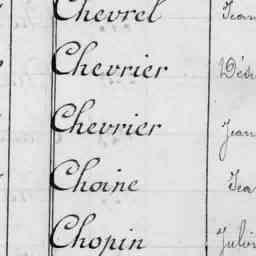 Chevrel Jean
Chevrier
Chevrier Jean
Choine
Chopin